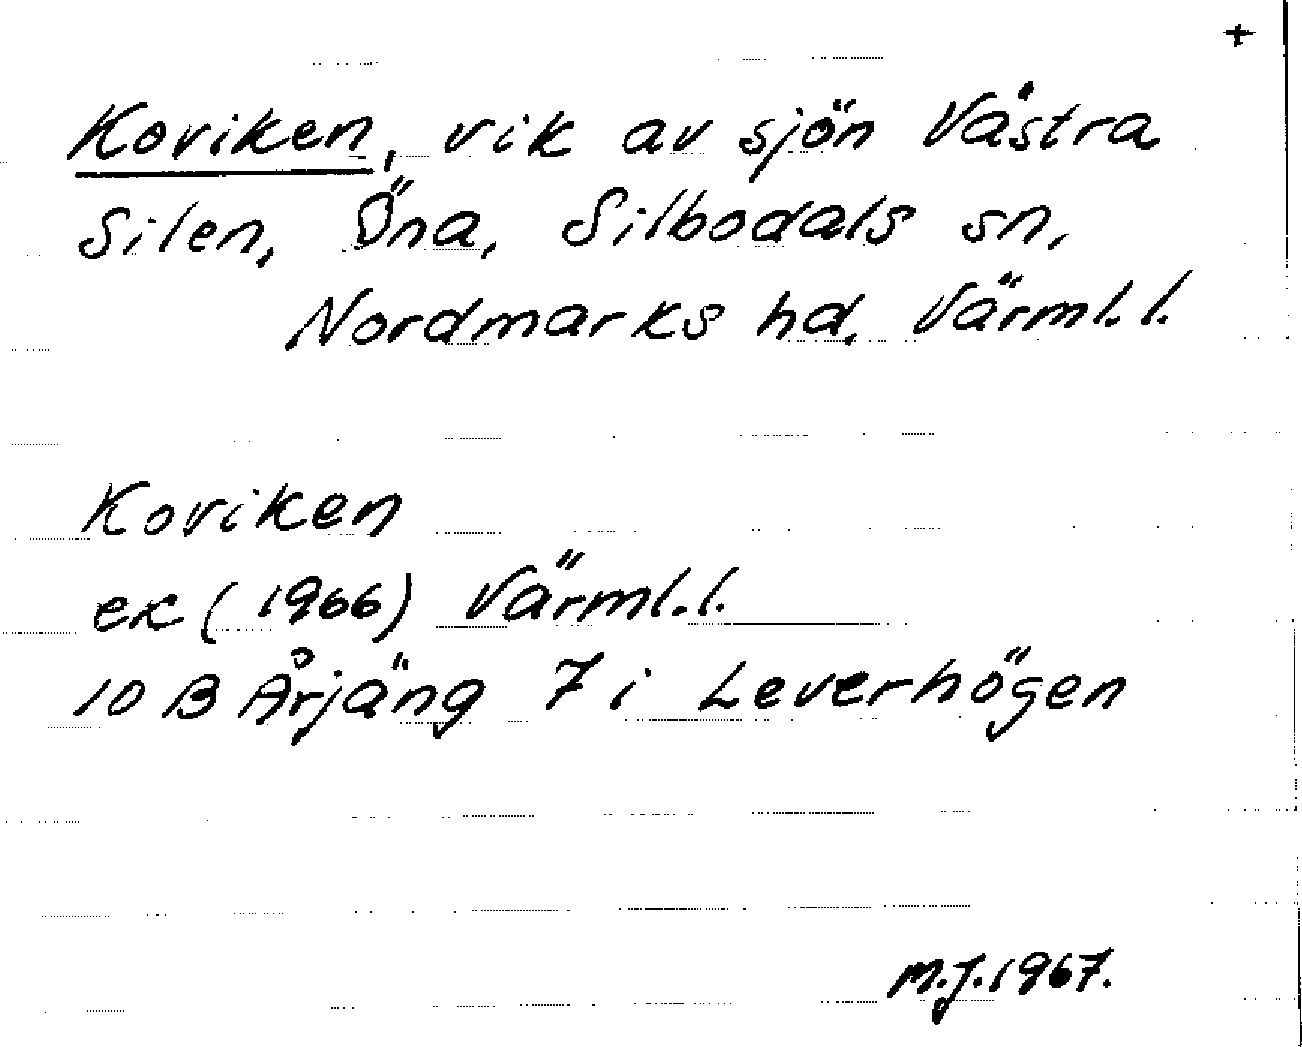 +
Koviken, vik av sjön Västra
Silen, Öna, Silbodals sn,
Nordmarks hd, Värml. l.
Koviken
ek (1966) Värml. l.
10 B Årjäng 7 i Leverhögen
M.J. 1967.